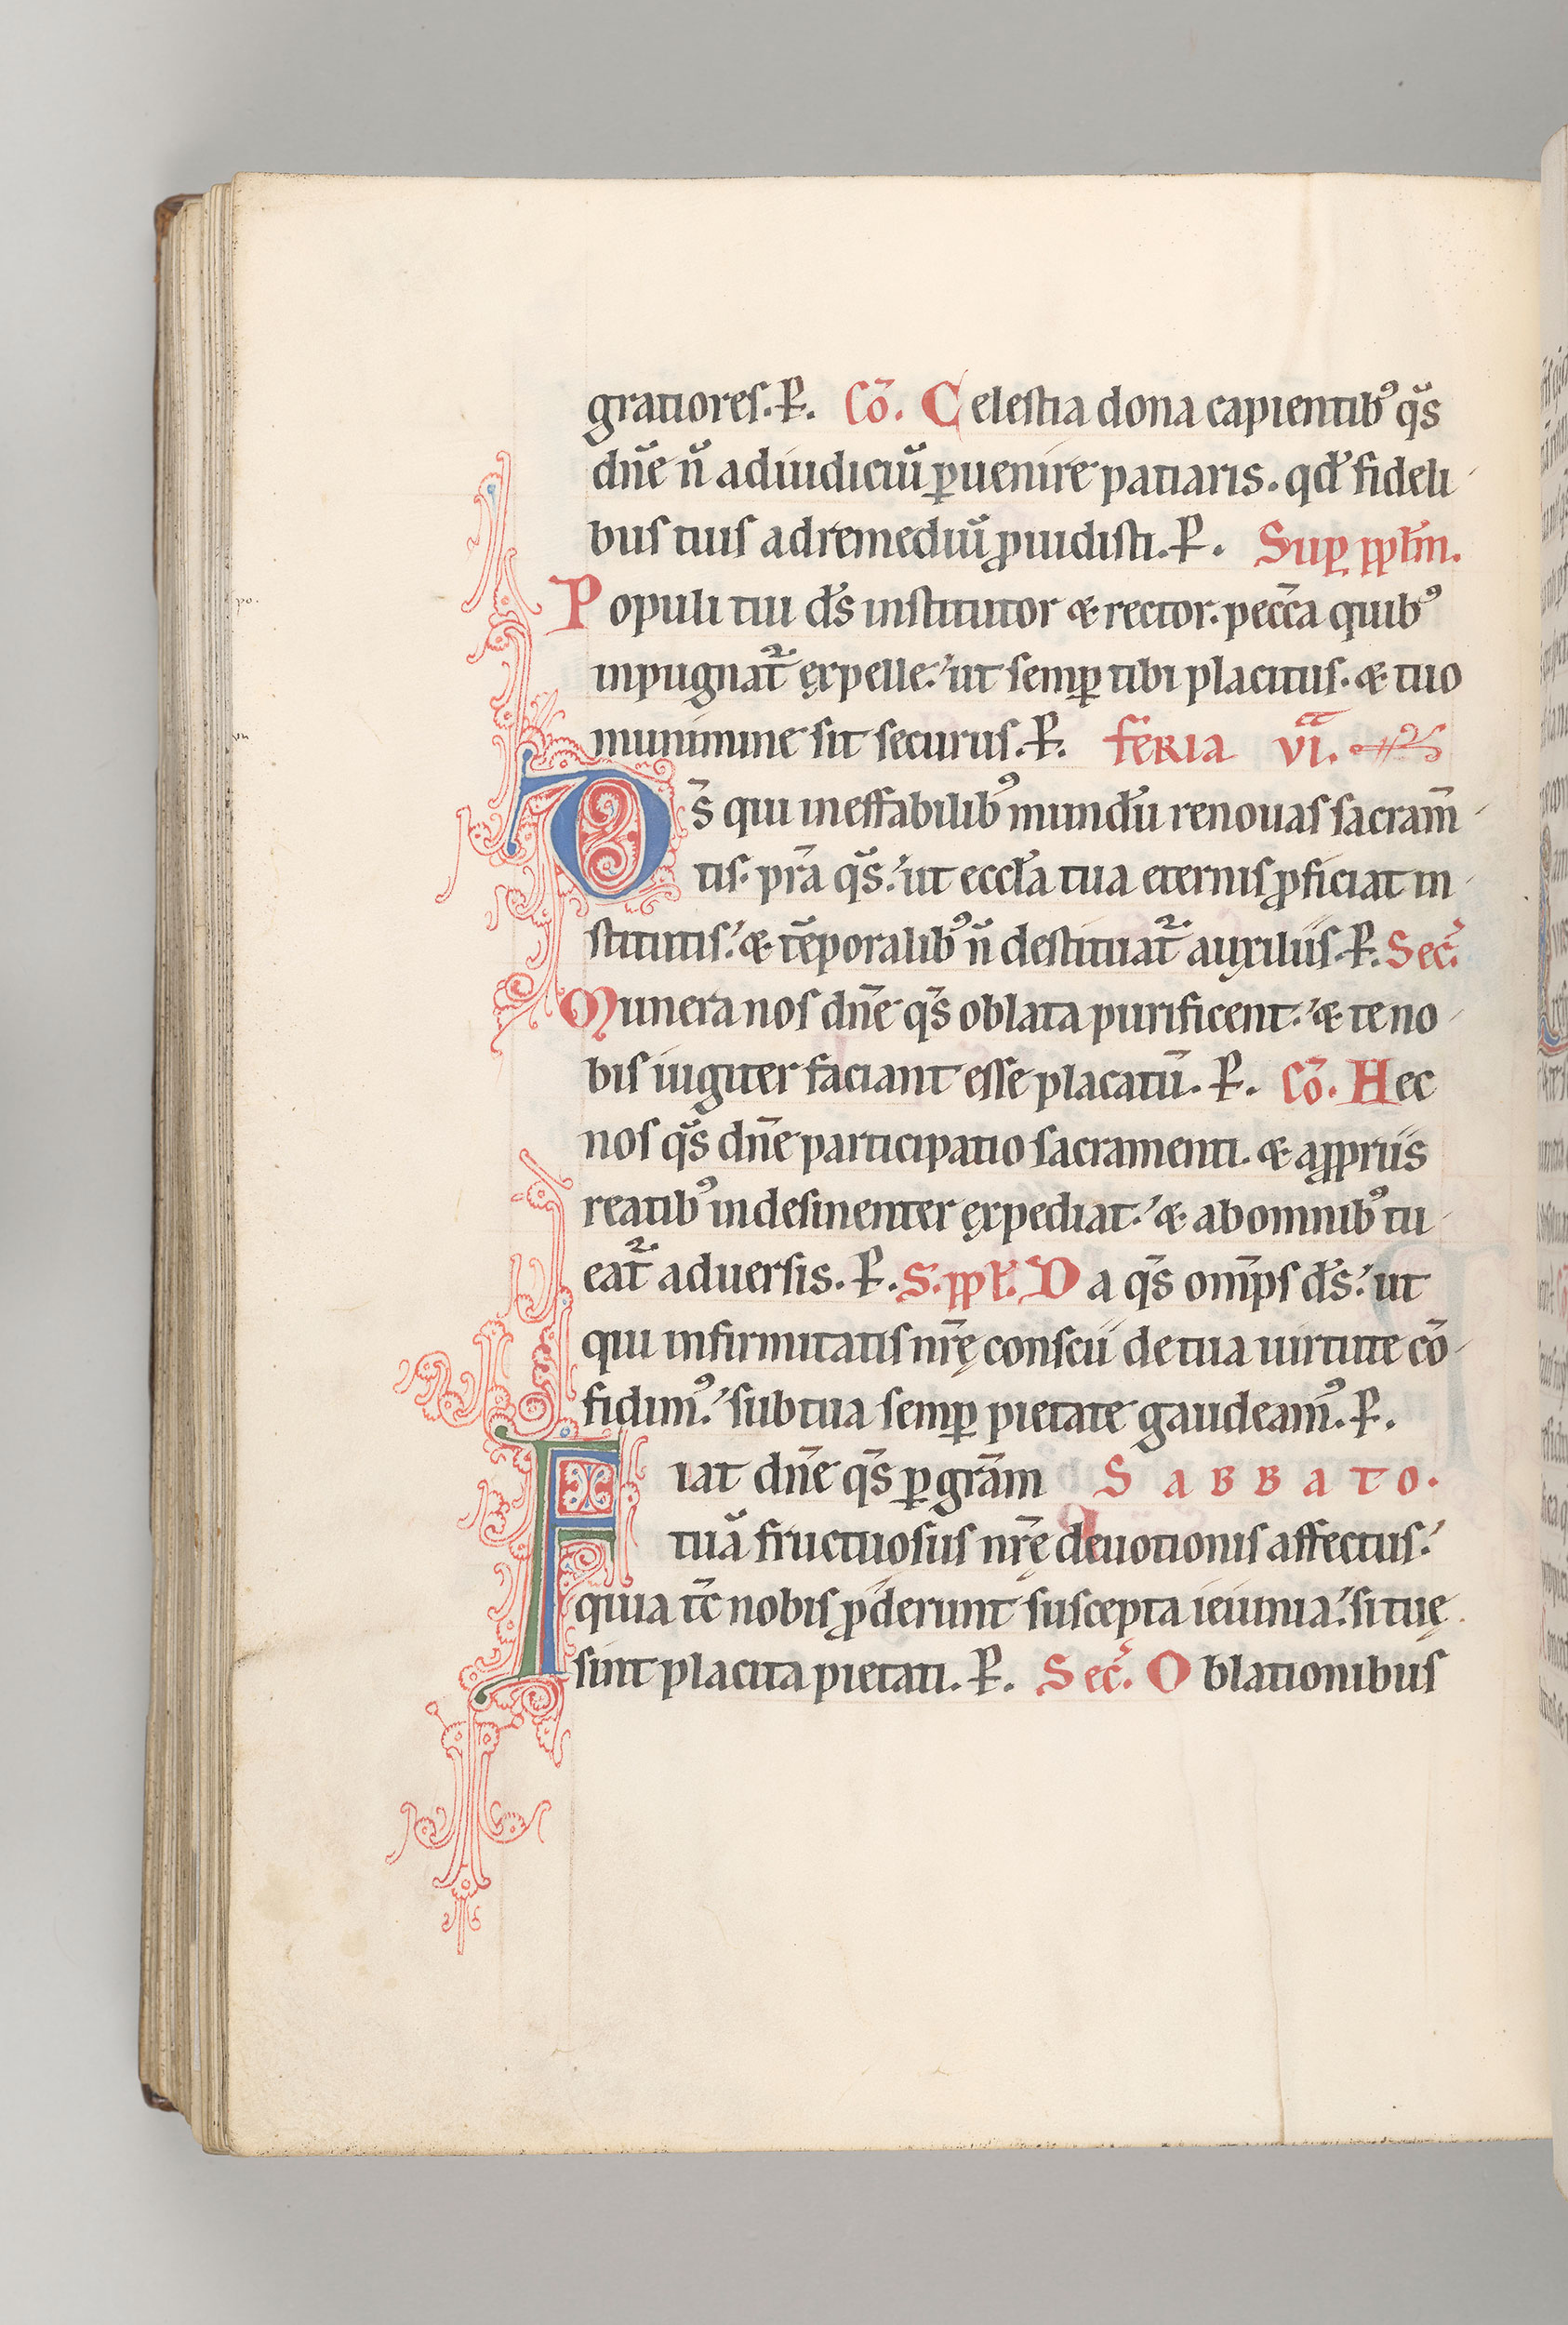 gratiores. P̶. Cō. Celestia dona capientib⁹ q̄s
dn̄e n̄ adiudiciū ꝑuenire patiaris. qd̄ fideli
bus tuis adremediū ꝓuidisti. P̶. Suꝑ pp̄lm̄.
Populi tui d̄s institutor & rector. pecc̄a quib⁹
inpugnat᷑ ęxpelle: ut semꝑ tibi placitus. & tuo
munimine sit securus. P̶. feria vi.ᵃ
D̄s qui ineffabilib⁹ mundū renouas sacram̄
tis. pr̄a q̄s: ut eccl̄a tua eternis ꝓficiat in
stitutis: & tēporalib⁹ n̄ destituat᷑ auxiliis. P̶. Sec̄.
Munera nos dn̄e q̄s oblata purificent: & te no
bis iugiter faciant esse placatū. P̶. Cō. Hec
nos q̄s dn̄e participatio sacramenti. & aꝓpriis
reatib⁹ indesinenter ęxpediat: & abomnib⁹ tu
eat᷑ aduersis. P̶. S. pp̄l. Da q̄s om̄ps d̄s: ut
qui infirmitatis nr̄ę conscii de tua uirtute cō
fidim⁹: sub tua semꝑ pietate gaudeam⁹. P̶.
Fiat dn̄e q̄s ꝑ gr̄am SABBATO.
tuā fructuosus nr̄ę deuotionis affectus:
quia tc̄ nobis ꝓderunt suscepta ieiunia: si tuę
sint placita pietati. P̶. Sec̄. Oblationibus